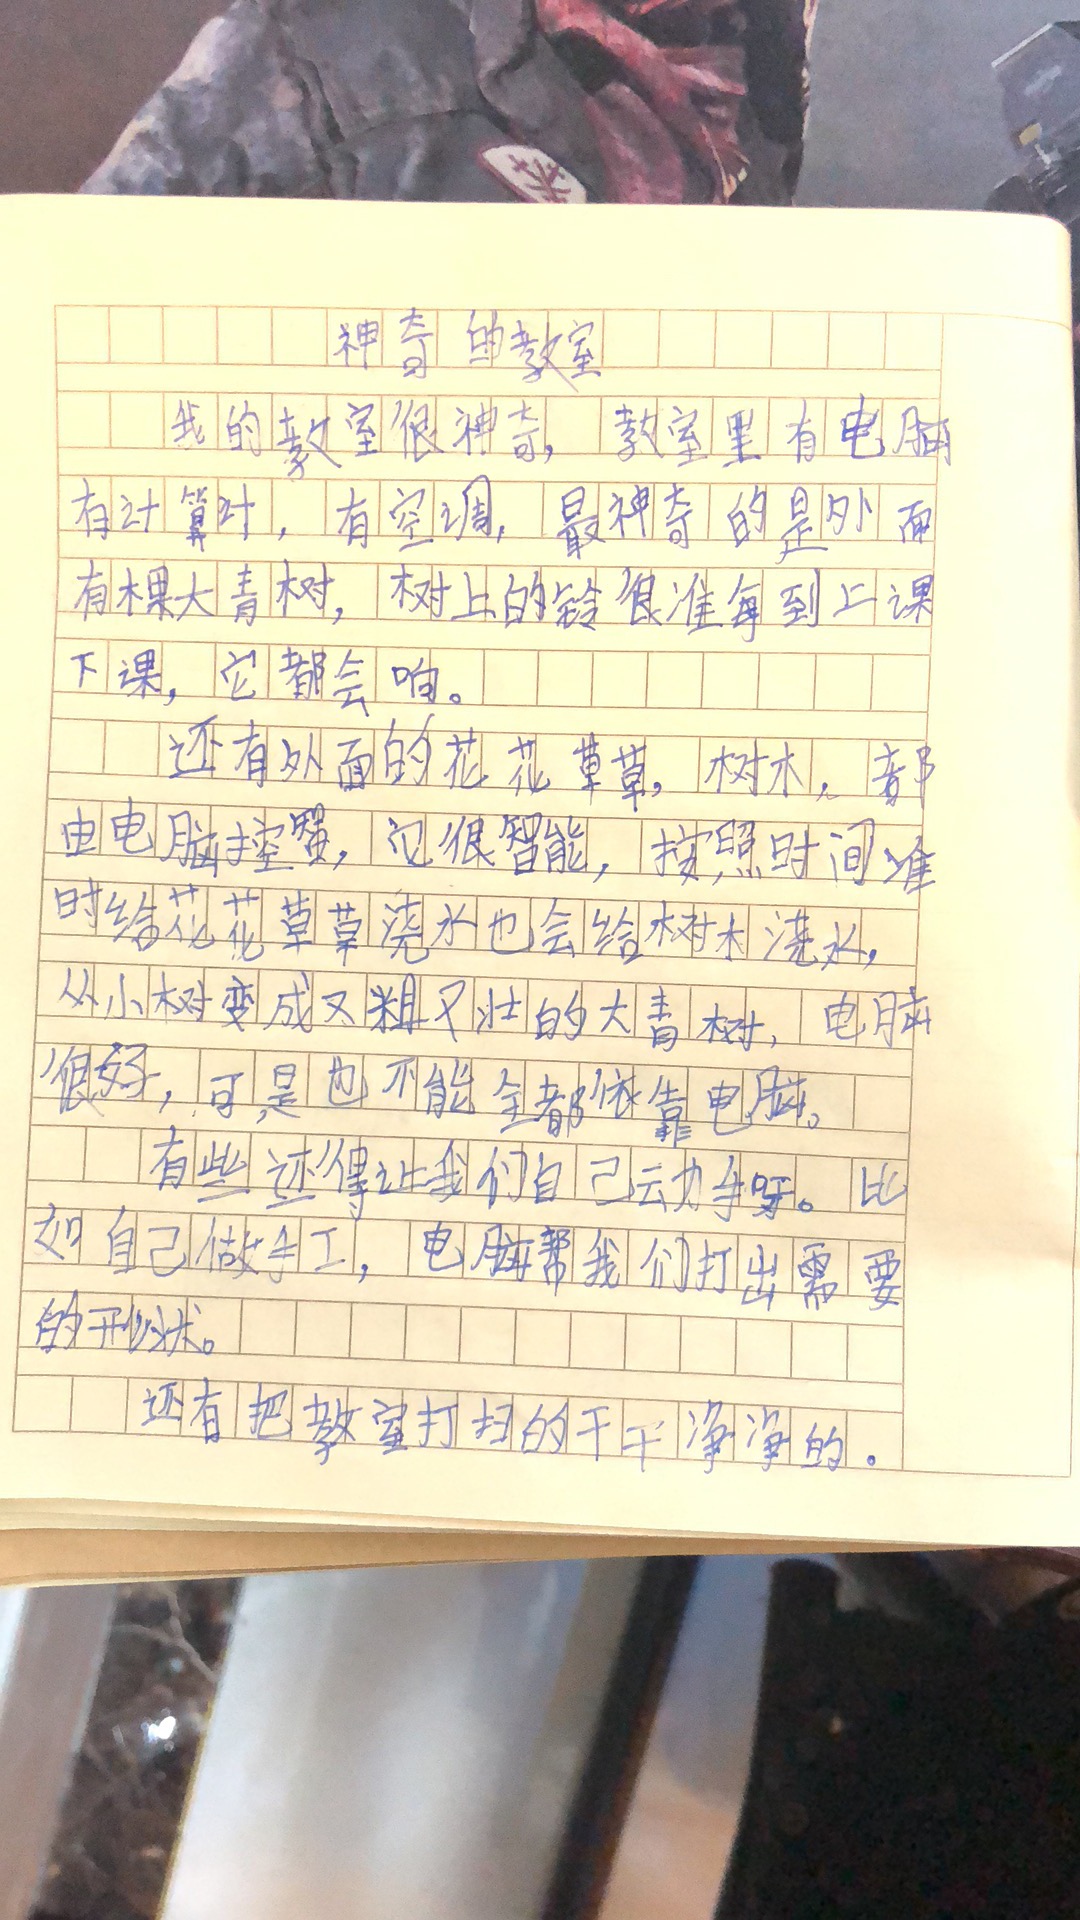 神奇的教室
我的教室很神奇，教室里有电脑
有计算叶，有空调，最神奇的是外面
有棵大青树，树上的铃很准每到上课
下课，它都会响。
还有外面的花花草草，树木，都
由电脑控，它很智能，按照时间准
时给花花草草浇水也会给树木浇水，
从小树变成又粗又壮的大青树，电脑
很好，可是也不能全都依靠电脑。
有些还得让我们自己动手呀。比
如自己做手工，电脑帮我们打出需要
的形状。
还有把教室打扫的干干净净的。